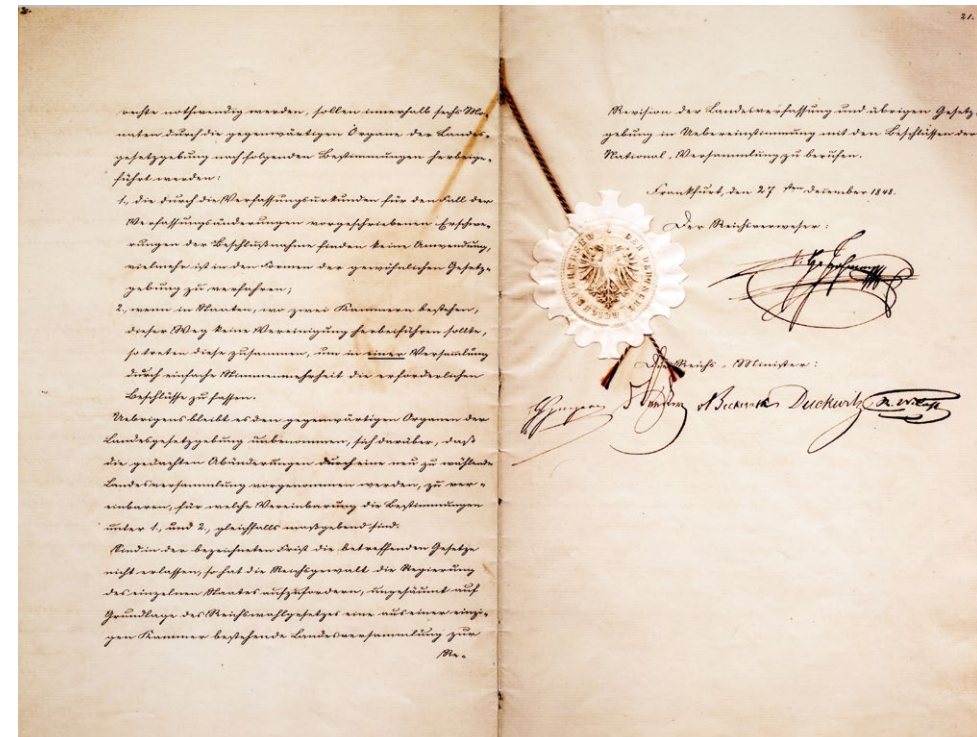 2.
rechte nothwendig werden, sollen innerhalb sechs Mo-
naten durch die gegenwärtigen Organe der Landes-
gesetzgebung nach folgenden Bestimmungen herbeige-
führt werden:
1., die durch die Verfassungsurkunden für den Fall der
Verfassungsänderungen vorgeschriebenen Erschwe-
rungen der Beschlußnahme finden keine Anwendung,
vielmehr ist in den Formen der gewöhnlichen Gesetz-
gebung zu verfahren;
2., wenn in Staaten, wo zwei Kammern bestehen,
dieser Weg keine Vereinigung herbeiführen sollte,
so treten diese zusammen, um in einer Versammlung
durch einfache Stimmenmehrheit die erforderlichen
Beschlüsse zu fassen.
Uebrigens bleibt es den gegenwärtigen Organen der
Landesgesetzgebung unbenommen, sich darüber, daß
die gedachten Abänderungen durch eine neu zu wählende
Landesversammlung vorgenommen werden, zu ver-
einbaren, für welche Vereinbarung die Bestimmungen
unter 1., und 2., gleichfalls maßgebend sind.
Sind in der bezeichneten Frist die betreffenden Gesetze
nicht erlassen, so hat die Reichsgewalt die Regierung
des einzelnen Staates aufzufordern, ungesäumt auf
Grundlage des Reichswahlgesetzes eine aus einer einzi-
gen Kammer bestehende Landesversammlung zur
Re-
21.
Revision der Landesverfassung und übrigen Gesetz-
gebung in Uebereinstimmung mit den Beschlüssen der
National-Versammlung zu berufen.
Frankfurt, den 27ten December 1848.
Der Reichsverweser:
Die Reichs-Minister:
HGagern Beckerath Duckwitz R. Mohl